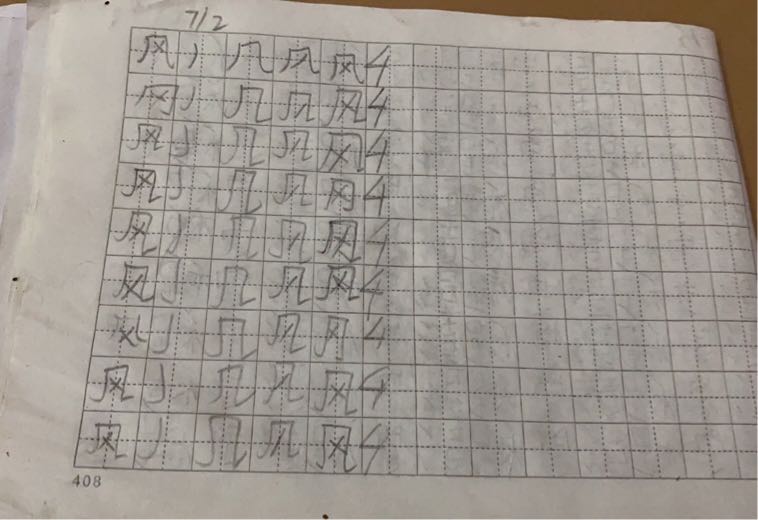 7/2
风 丿 几 风 4
风 丿 几 风 4
风 丿 几 风 4
风 丿 几 风 4
风 丿 几 风 4
风 丿 几 风 4
风 丿 几 风 4
风 丿 几 风 4
风 丿 几 风 4
408